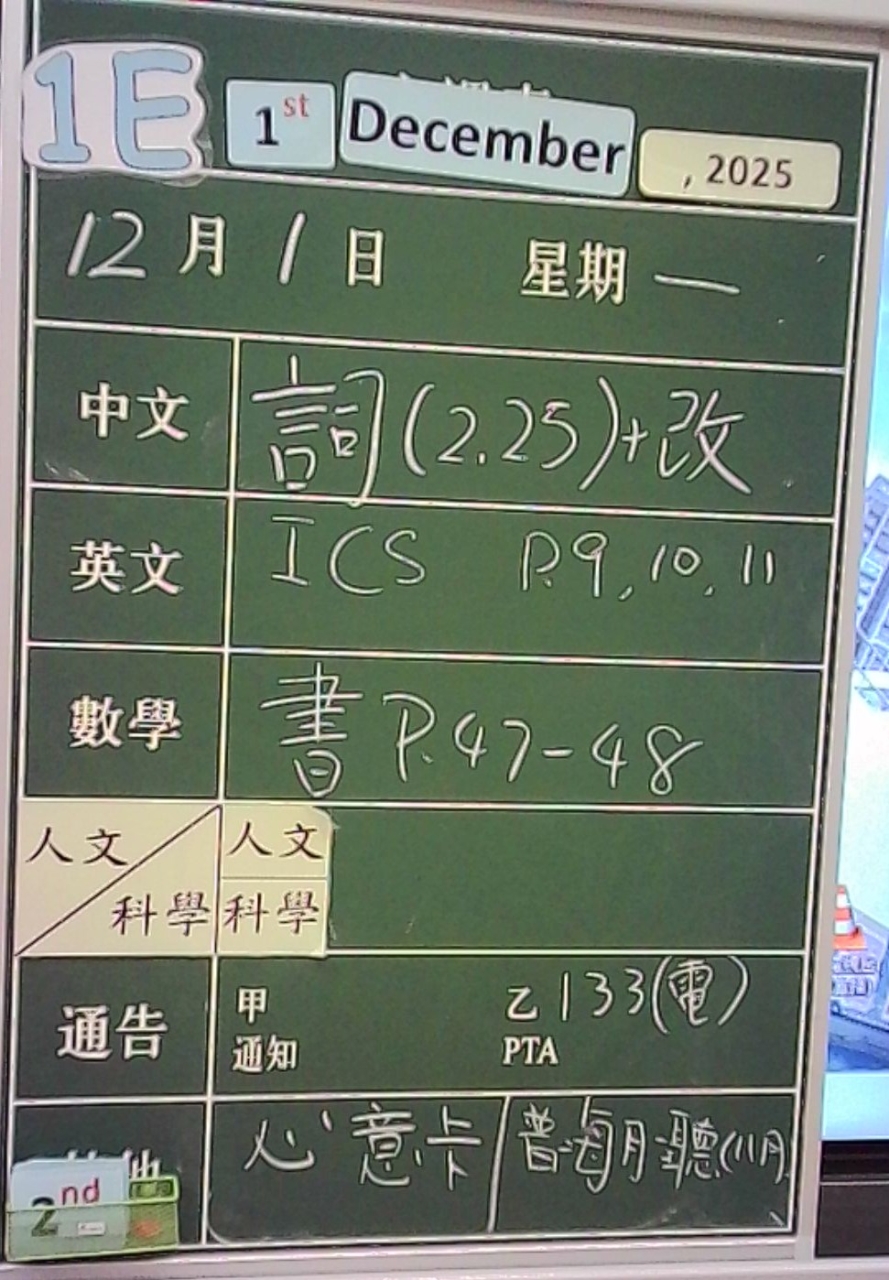 1E 1st December , 2025
12月1日 星期一
中文 詞(2.25)+改
英文 ICS P.9, 10, 11
數學 書 P.47-48
人文 人文
科學 科學
通告 甲 乙 133(電)
通知 PTA
心意卡 普每月聽(11月)
2nd